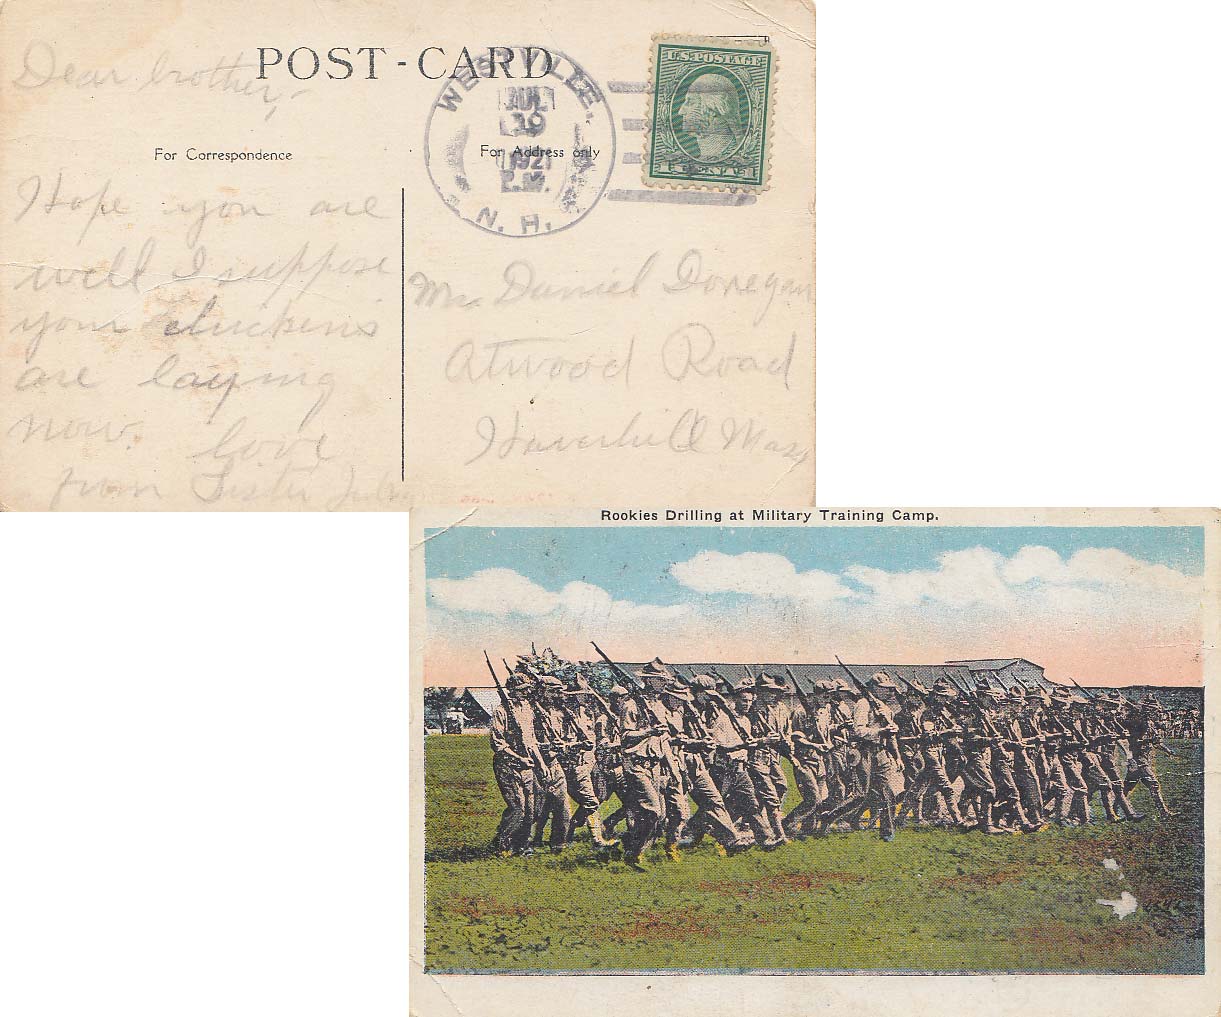 POST-CARD
Dear brother,-
For Correspondence
For Address only
WESTVILLE.
19
192
P.M.
N. H.
U.S. POSTAGE
Hope you are
well I suppose
your chickens
are laying
now.
love
from Sister
Mr. Daniel Donegan
Atwood Road
Haverhill Mass
Rookies Drilling at Military Training Camp.